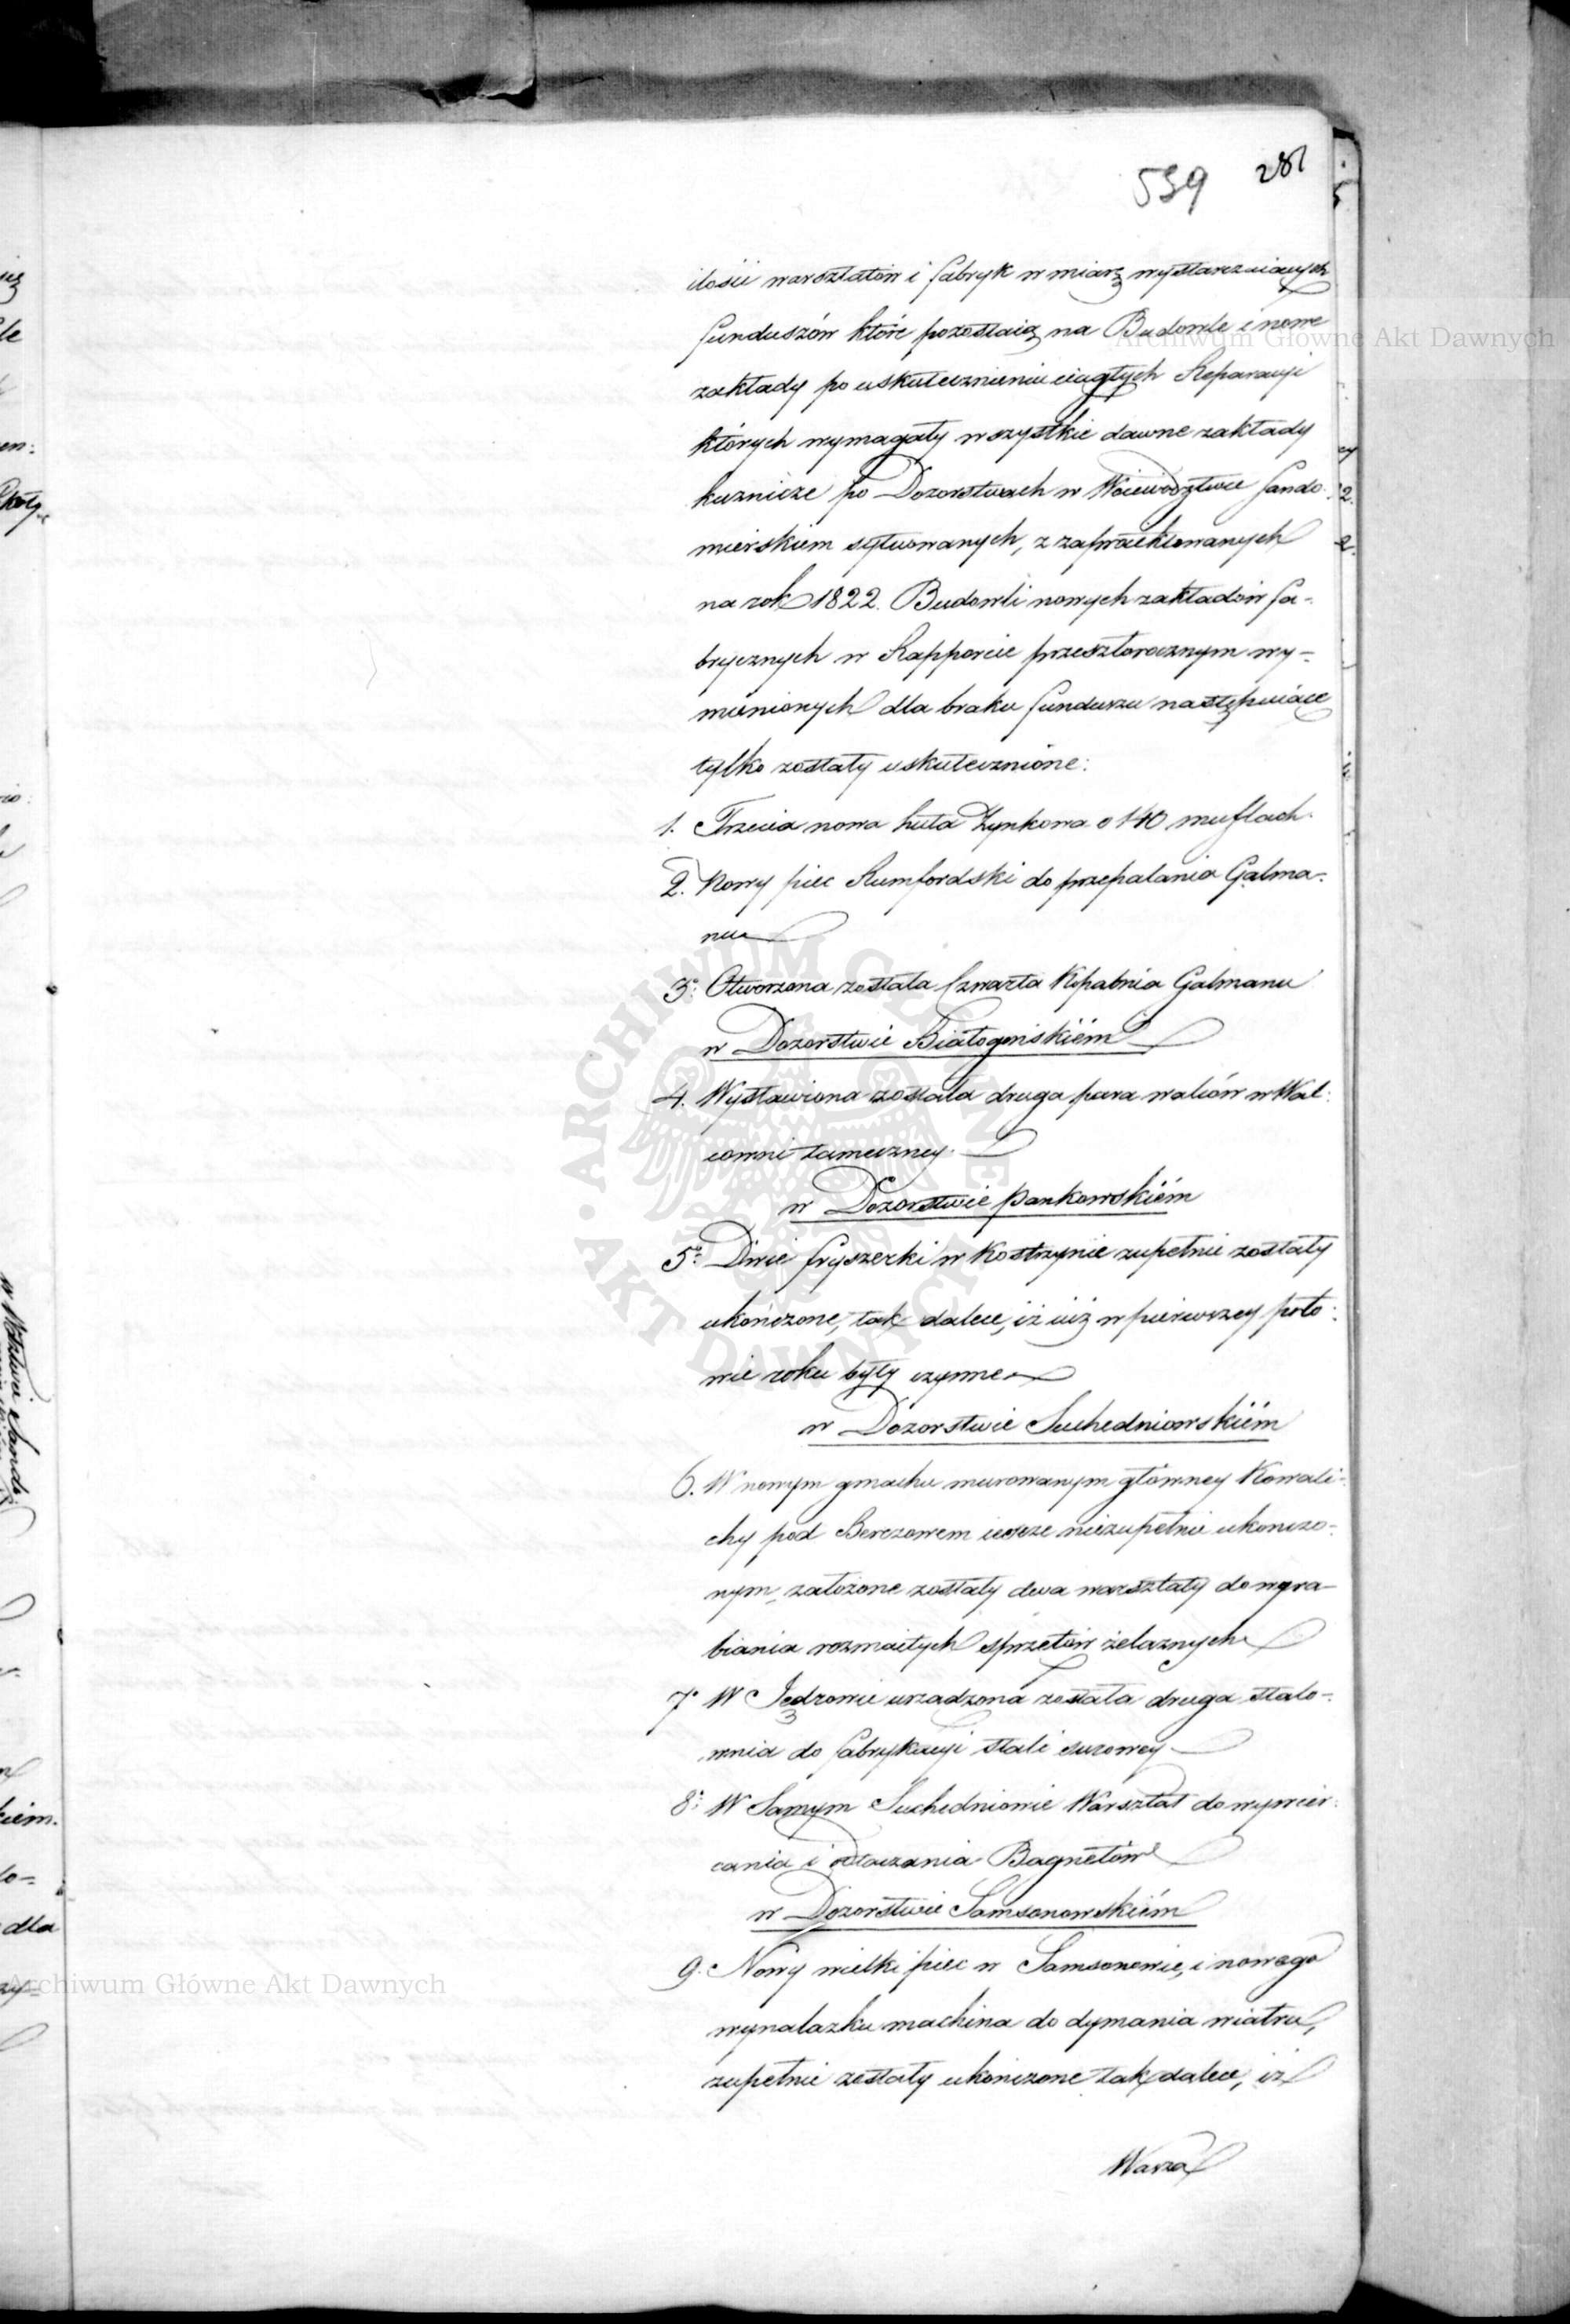 539 281
ilości warsztatów i fabryk w miarę wystarczaiących
funduszów które pozostaią na Budowle i nowe
zakłady po uskutecznieniu ciągłych Reparacyi
których wymagały wszystkie dawne zakłady
kuznicze po Dozorstwach w Woiewództwie Sando-
mierskiem sytuowanych, z zaproiektowanych
na rok 1822. Budowli nowych zakładów fa-
brycznych w Rapporcie przeszłorocznym wy-
mienionych dla braku funduszu następuiące
tylko zostały uskutecznione:
1. Trzecia nowa huta Zynkowa o 140 muflach.
2. Nowy piec Rumfordski do przepalania Galma-
nu
3. Otworzona została Czwarta Kopalnia Galmanu
w Dozorstwie Białogońskiém
4. Wystawiona została druga para walców w Wal:
cowni tameczney.
w Dozorstwie Pankowskiém
5. Dwie fryszerki w Kostrzynie zupełnie zostały
ukończone, tak dalece, iż iuż w pierwszey poło:
wie roku były czynne
w Dozorstwie Suchedniowskiém
6. W nowym gmachu murowanym główney Kowali-
chy pod Berezowem ieszcze niezupełnie ukonczo-
nym, założone zostały dwa warsztaty do wyra-
biania rozmaitych sprzetów żelaznych
7. W Jędrowie urządzona została druga stalo-
wnia do fabrykacyi stali surowey
8. W Samym Suchedniowie Warsztat do wywier:
cania i otaczania Bagnetów
w Dozorstwie Samsonowskiém
9. Nowy wielki piec w Samsonowie, i nowego
wynalazku machina do dymania wiatru,
zupełnie zostały ukończone tak dalece, iż
Zaraz
Archiwum Główne Akt Dawnych
Archiwum Główne Akt Dawnych
ARCHIWUM GŁÓWNE · AKT DAWNYCH ·